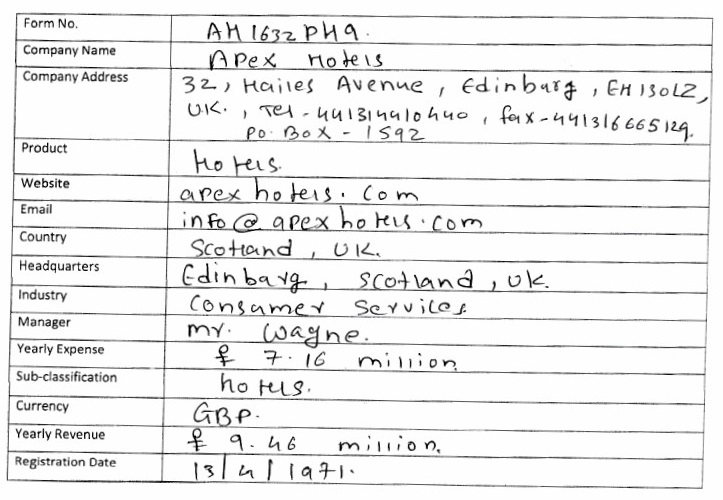 Form No. AH1632PH9.
Company Name Apex Hotels
Company Address 32, Hailes Avenue, Edinburg, EH130LZ,
U.K., Tel - 441314410440, fax - 441316665129.
P.O. Box - 1592
Product Hotels.
Website apexhotels.com
Email info@apexhotels.com
Country Scotland, UK.
Headquarters Edinburg, Scotland, UK.
Industry Consumer Services
Manager Mr. Wayne.
Yearly Expense £ 7.16 million.
Sub-classification hotels.
Currency GBP.
Yearly Revenue £ 9.46 million.
Registration Date 13/4/1971.